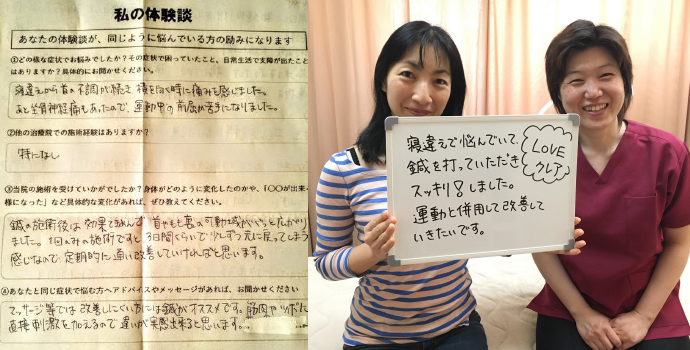 私の体験談
あなたの体験談が、同じように悩んでいる方の励みになります
①どの様な症状でお悩みでしたか？その症状で困っていたこと、日常生活で支障が出たこと
はありますか？具体的にお聞かせください。
寝違えから首の不調が続き 横を向く時に痛みを感じました。
あと坐骨神経痛もあったので、運動中の前屈が苦手になりました。
②他の治療院での施術経験はありますか？
特になし
③当院の施術を受けていかがでしたか？身体がどのように変化したのかや、「〇〇が出来る
様になった」など具体的な変化があれば、ぜひ教えてください。
鍼の施術後は効果てきめんで 首やもも裏の可動域がぐっと広がり
ました。1回のみの施術ですと、3日間くらいで少しずつ元に戻ってしまう
感じなので 定期的に通い改善していければと思います。
④あなたと同じ症状で悩む方へアドバイスやメッセージがあれば、お聞かせください
マッサージ等では改善しにくい方には鍼がオススメです。筋肉やツボに
直接刺激を加えるので違いが実感出来ると思います。
寝違えで悩んでいて、
鍼を打っていただき
スッキリ！しました。
運動と併用して改善して
いきたいです。
LOVE
クレア